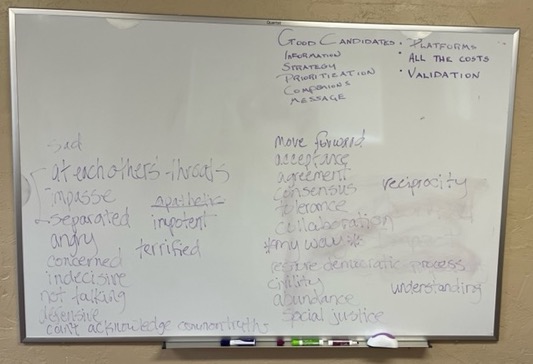 Quartet
GOOD CANDIDATES
INFORMATION
STRATEGY
PRIORITIZATION
COMPANIONS
MESSAGE
• PLATFORMS
• ALL THE COSTS
• VALIDATION
sad
at each others' throats
impasse
separated
angry
concerned
indecisive
not talking
defensive
can't acknowledge common truths
apathetic
impotent
terrified
move forward
acceptance
agreement
consensus
tolerance
collaboration
*my way*
restore democratic process
civility
abundance
social justice
reciprocity
understanding